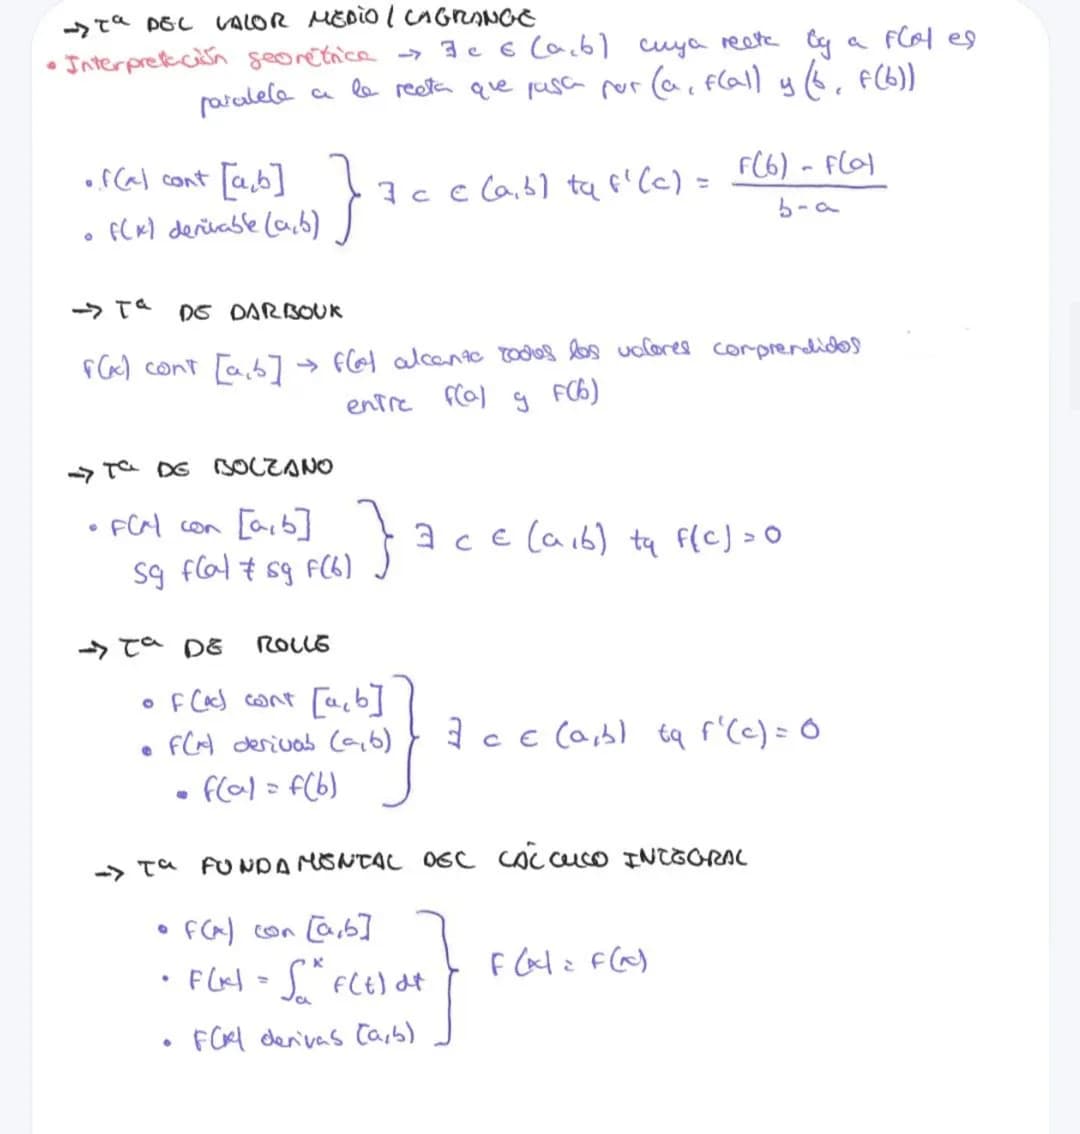 → Tª DEL VALOR MEDIO / LAGRANGE
• Interpretación geométrica → ∃ c ∈ (a,b) cuya recta tg a f(x) es
paralela a la recta que pasa por (a, f(a)) y (b, f(b))
• f(x) cont [a,b]
• f(x) derivable (a,b) } ∃ c ∈ (a,b) tq f'(c) = (f(b) - f(a)) / (b-a)
→ Tª DE DARBOUX
f(x) cont [a,b] → f(x) alcanza todos los valores comprendidos
entre f(a) y f(b)
→ Tª DE BOLZANO
• f(x) con [a,b]
sg f(a) ≠ sg f(b) } ∃ c ∈ (a,b) tq f(c) = 0
→ Tª DE ROLLE
• f(x) cont [a,b]
• f(x) derivab (a,b) } ∃ c ∈ (a,b) tq f'(c) = 0
• f(a) = f(b)
→ Tª FUNDAMENTAL DEL CÁLCULO INTEGRAL
• f(x) con [a,b]
• F(x) = ∫ₐˣ f(t) dt } F(x) = f(x)
• F(x) derivab [a,b)